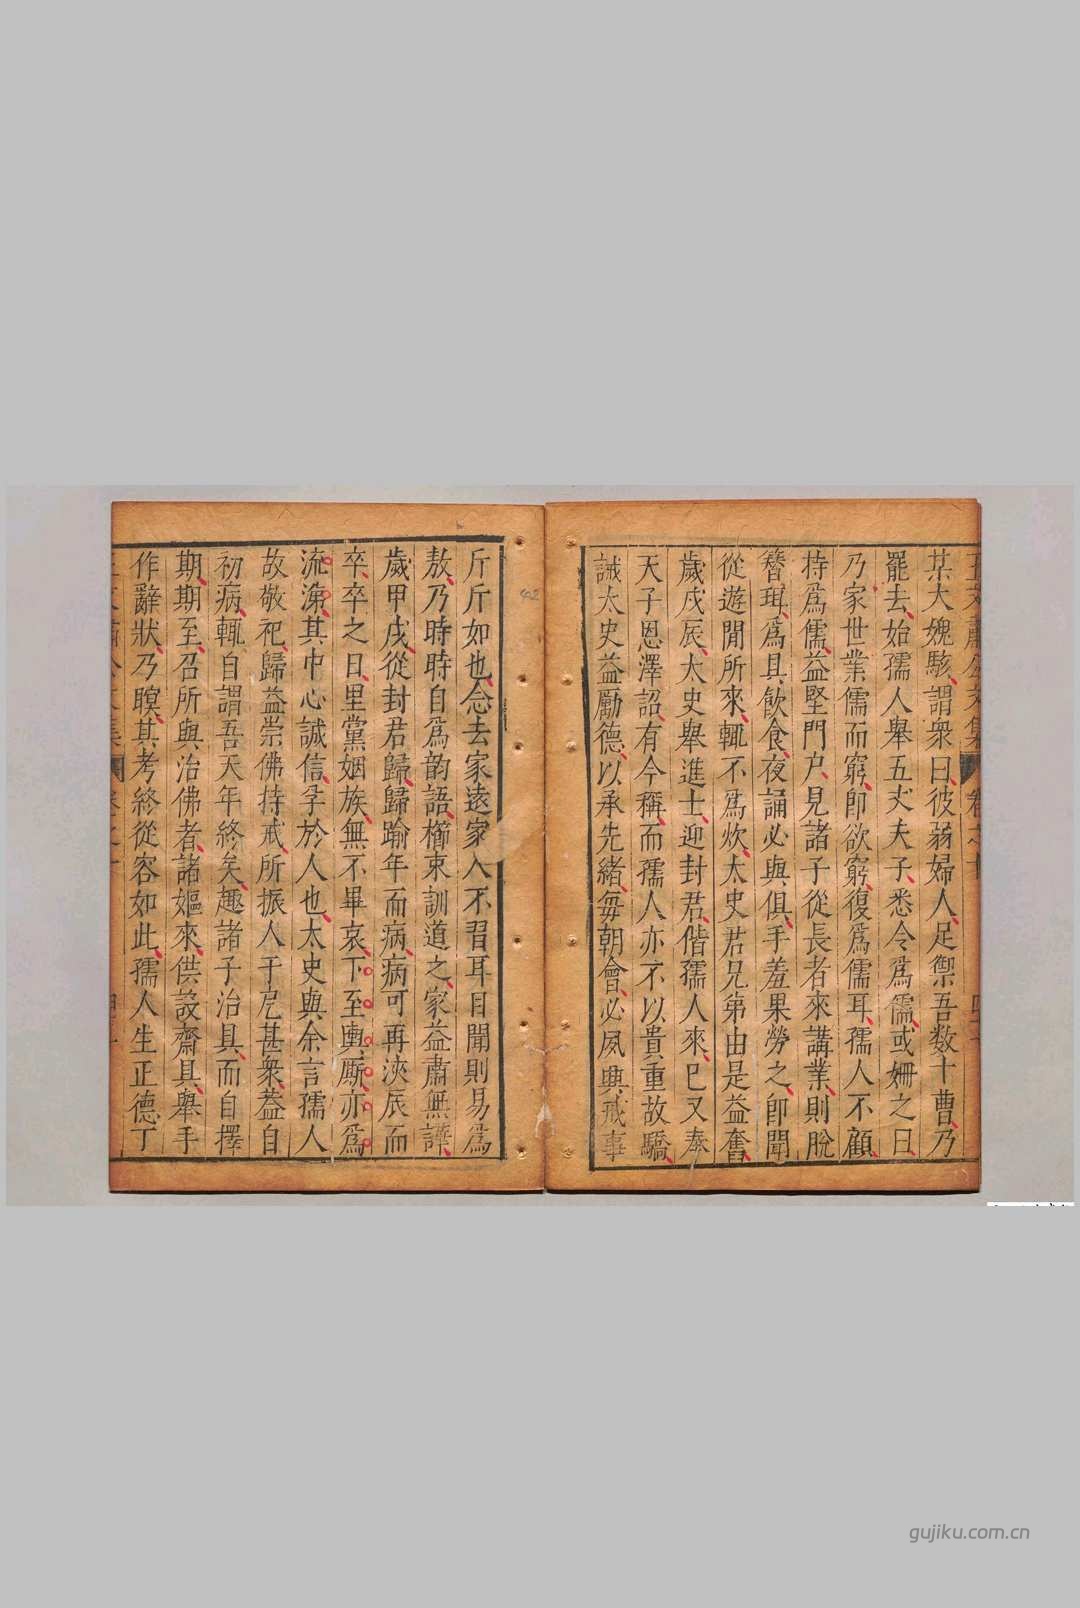 某大媿駭謂衆曰彼弱婦人足禦吾数十曹乃
罷去始孺人舉五丈夫子悉令爲儒或姍之曰
乃家世業儒而窮卽欲窮復爲儒耳孺人不顧
持爲儒益堅門户見諸子從長者來講業則脫
簪珥爲具飲食夜誦必與俱手羞果勞之卽聞
從遊閒所來輒不爲炊太史君兄弟由是益奮
歲戊辰太史舉進士迎封君偕孺人來已又奉
天子恩澤詔有今稱而孺人亦不以貴重故驕
誡太史益勵德以承先緒每朝會必夙興戒事
斤斤如也念去家遠家人不習耳目聞則易爲
敖乃時時自爲韵語櫛束訓道之家益肅無譁
歲甲戌從封君歸歸踰年而病病可再浹辰而
卒卒之日里黨姻族無不畢哀下至輿厮亦爲
流涕其中心誠信孚於人也太史與余言孺人
故敬祀歸益崇佛持戒所振人于戹甚衆葢自
初病輒自謂吾天年終矣趣諸子治具而自擇
期期至召所與治佛者諸嫗來供設齋具舉手
作辭狀乃瞑其考終從容如此孺人生正德丁
卷之十
gujiku.com.cn